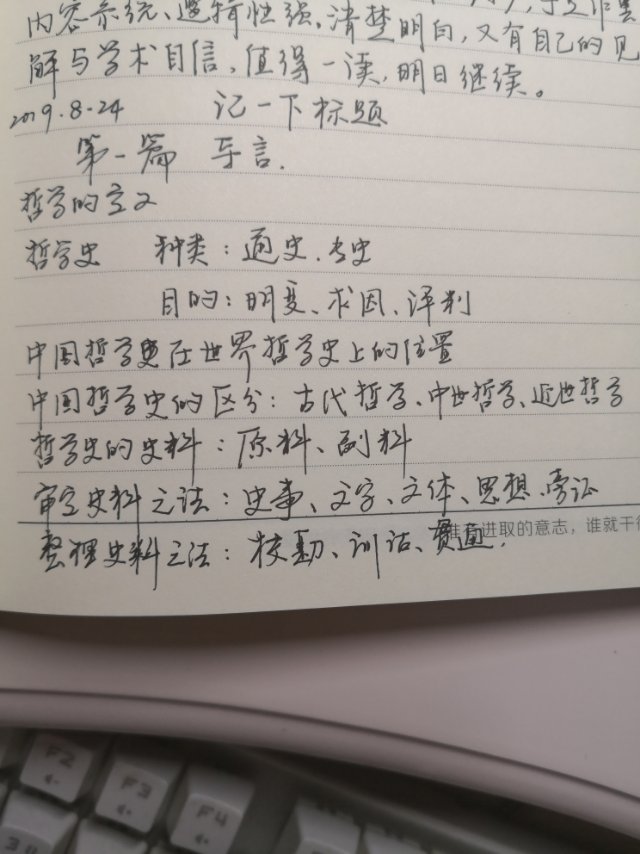 内容系统、逻辑性强、清楚明白，又有自己的见
解与学术自信，值得一读，明日继续。
2019.8.24 记一下标题
第一篇 导言.
哲学的定义
哲学史 种类：通史、专史
目的：明变、求因、评判
中国哲学史在世界哲学史上的位置
中国哲学史的区分：古代哲学、中世哲学、近世哲学
哲学史的史料：原料、副料
审定史料之法：史事、文字、文体、思想、旁证
进取的意志，谁就干得
整理史料之法：校勘、训诂、贯通.
F2
F3
F4